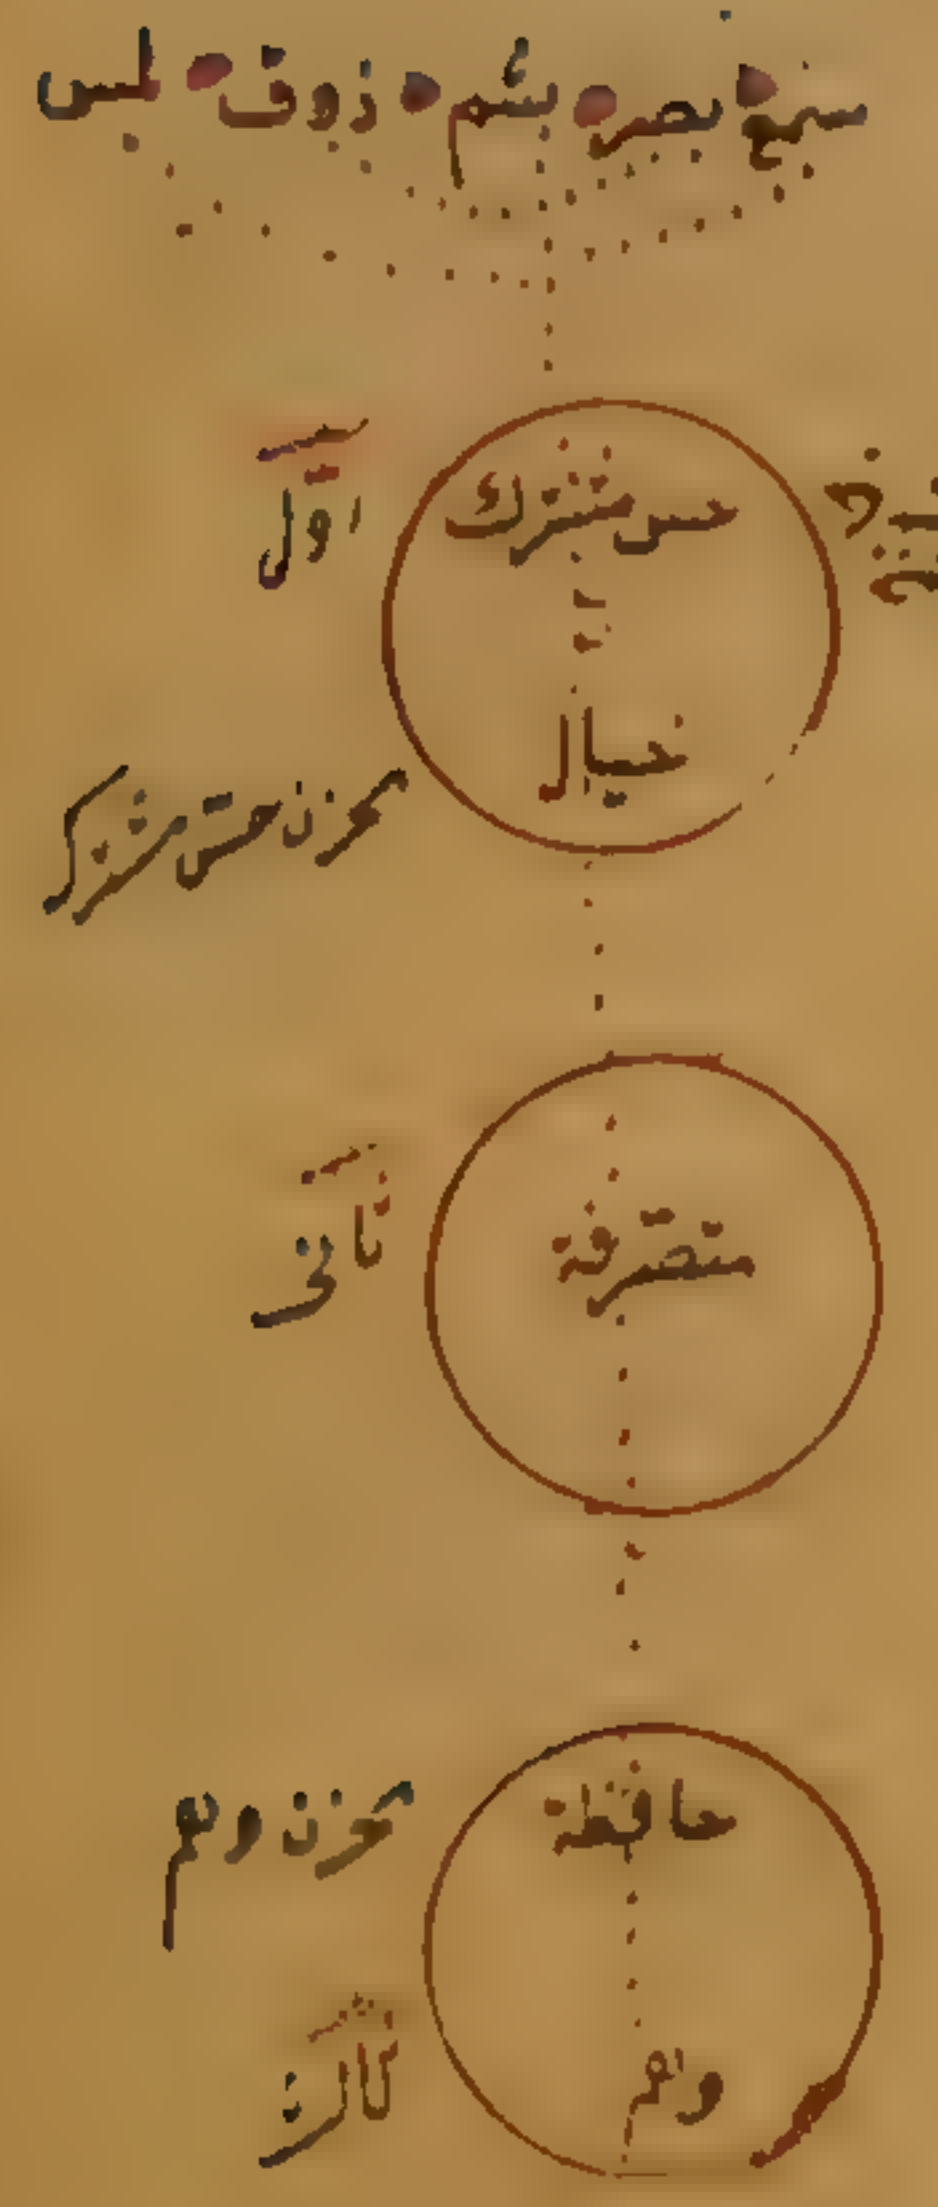 سمع بصر شم ذوق لمس
حس مشترك
اول
خيال
مخزن حس مشترك
متصرفة
ثانى
حافظة
مخزن وهم
وهم
ثالث